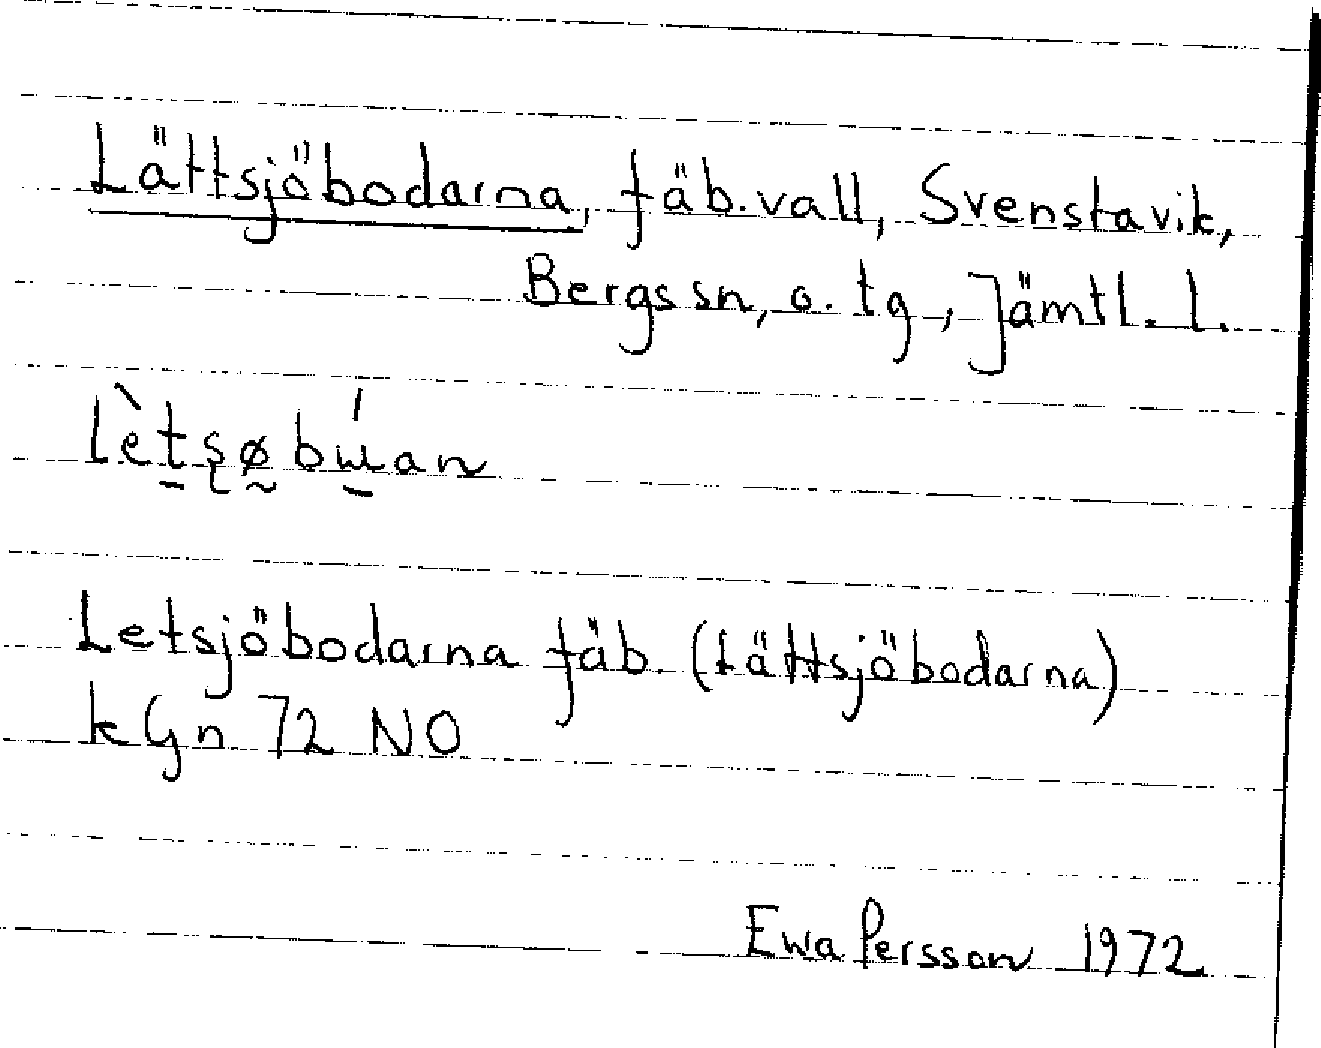 Lättsjöbodarna, fäb.vall, Svenstavik,
Bergs sn, o. tg, Jämtl. l.
Letsjöbodarna fäb. (Lättsjöbodarna)
kGn 72 NO
Ewa Persson 1972